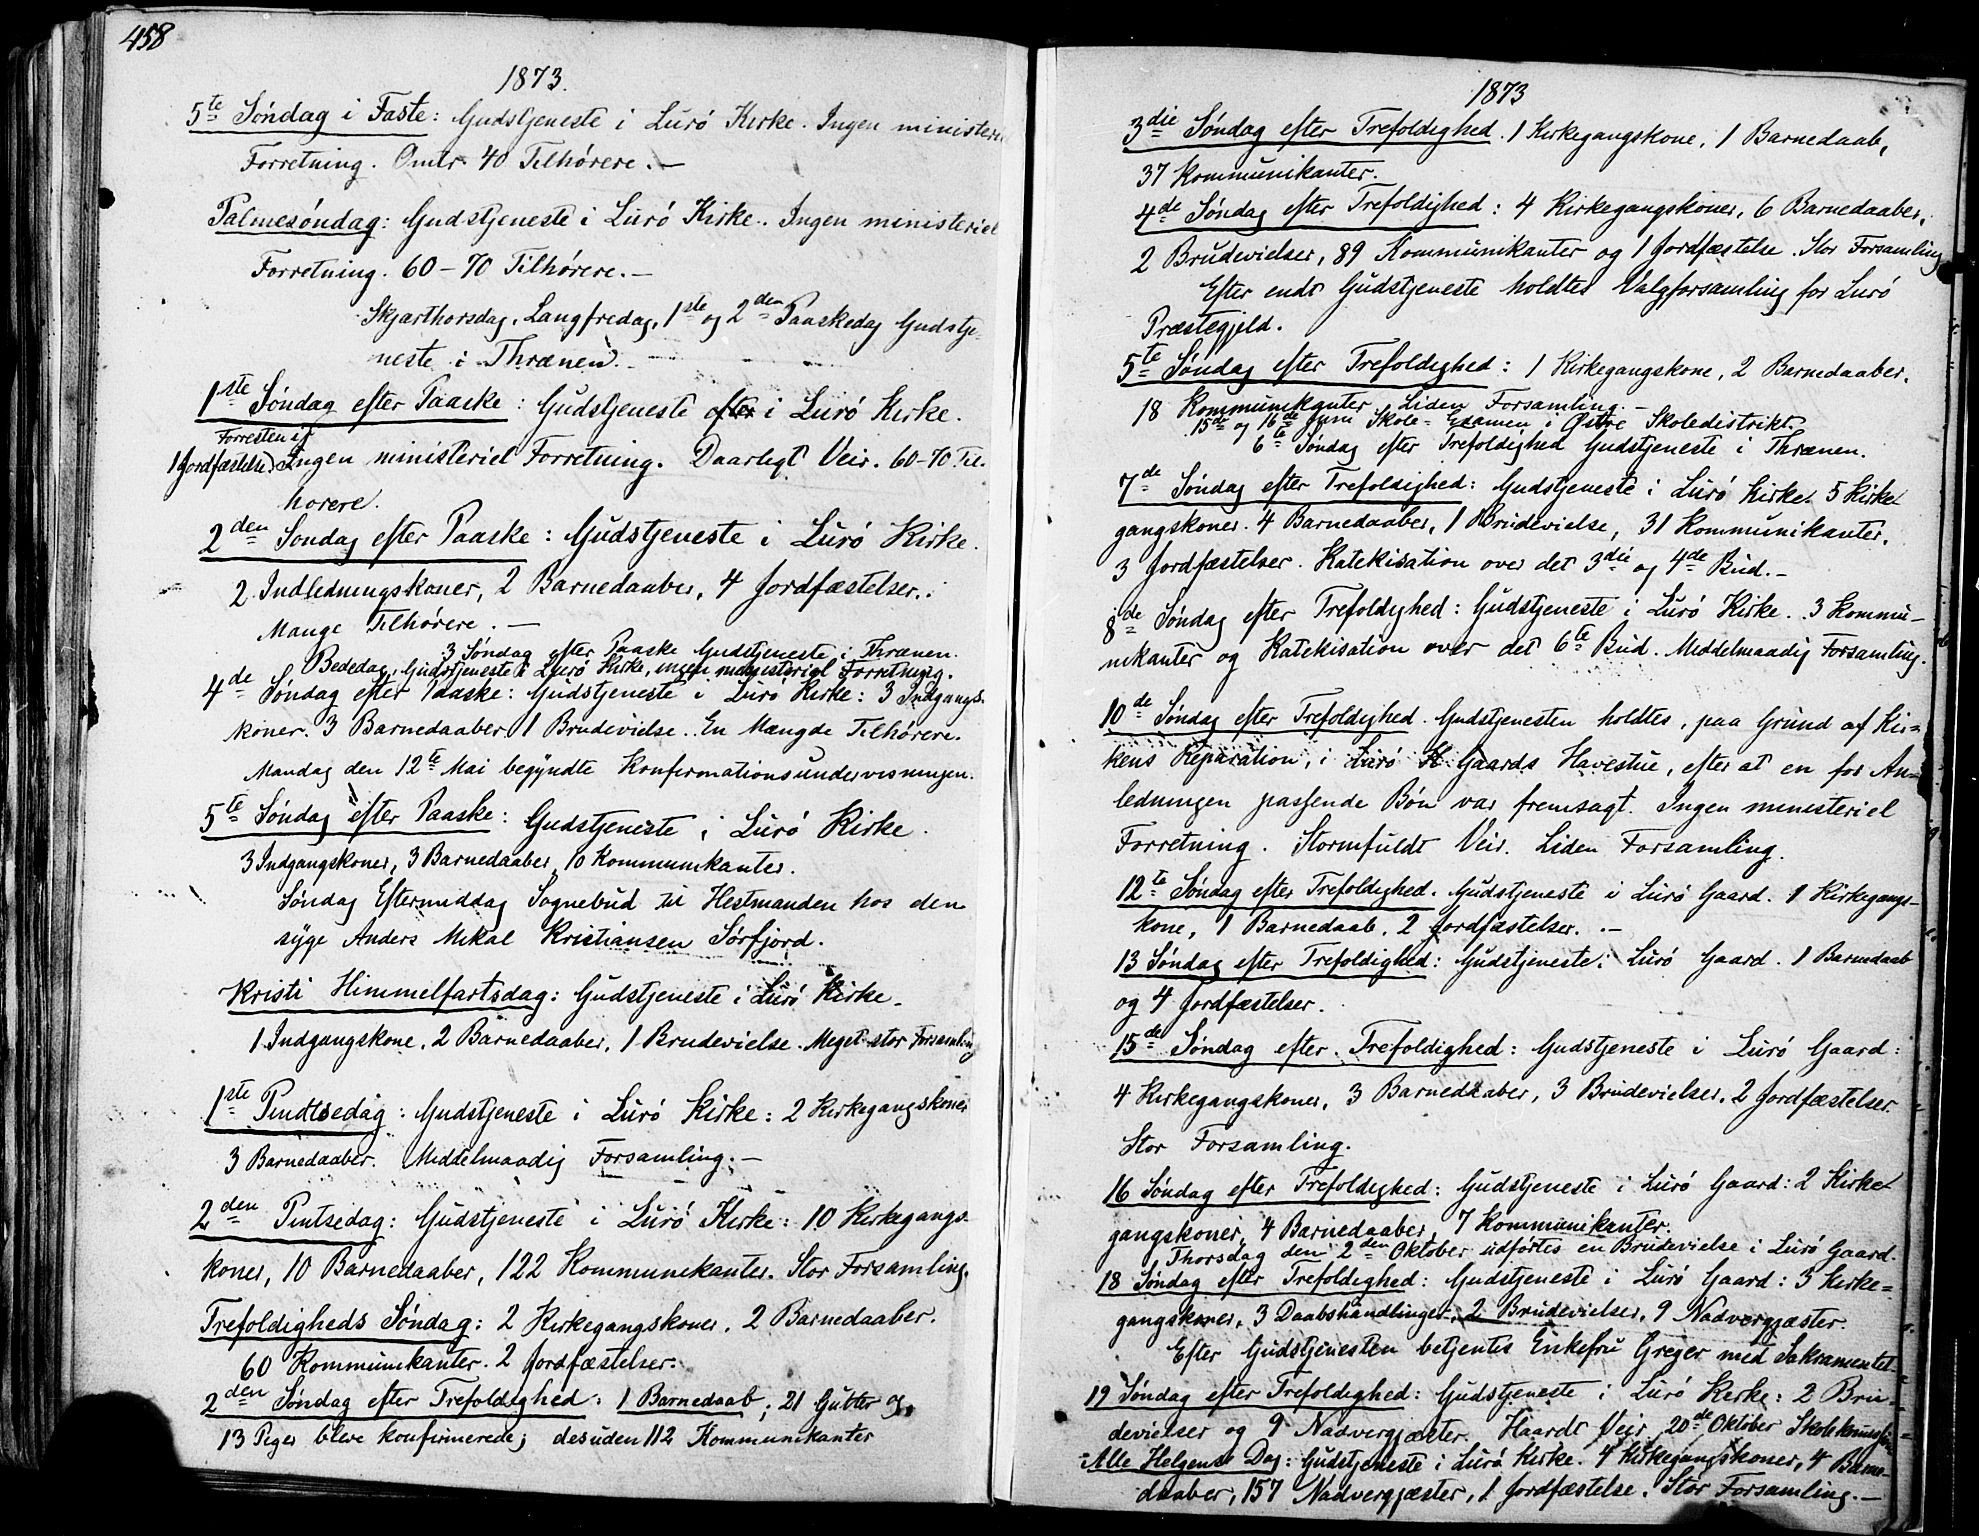 458
1873.
5te Søndag i Faste: Gudstjeneste i Lurö Kirke. Ingen ministeriel
Forretning. Omtr. 40 Tilhørere. —
Palmesöndag: Gudstjeneste i Lurö Kirke. Ingen ministeriel
Forretning. 60–70 Tilhörere. —
Skjærthorsdag, Langfredag, 1ste og 2den Paaskedag Gudstje-
neste i Thrænen.
1ste Söndag efter Paaske: Gudstjeneste efter i Lurö Kirke.
Forresten if
1 Jordfæstelse. Ingen ministeriel Forretning. Daarligt Veir. 60–70 Til-
hörere.
2den Söndag efter Paaske: Gudstjeneste i Lurö Kirke.
2 Indledningskoner, 2 Barnedaaber, 4 Jordfæstelser.
Mange Tilhörere. —
3 Söndag efter Paaske Gudstjeneste i Thrænen.
Bededag, Gudstjeneste i Lurö Kirke, ingen ministeriel Forretning.
4de Söndag efter Paaske: Gudstjeneste i Lurö Kirke: 3 Indgangs-
koner. 3 Barnedaaber 1 Brudevielse. En Mængde Tilhörere.
Mandag den 12te Mai begyndte Konfirmationsundervisningen.
5te Söndag efter Paaske: Gudstjeneste i Lurö Kirke.
3 Indgangskoner, 3 Barnedaaber, 10 Kommunikanter.
Söndag Eftermiddag Sognebud til Hestmanden hos den
syge Anders Mikal Kristiansen Sörfjord.
Kristi Himmelfartsdag: Gudstjeneste i Lurö Kirke.
1 Indgangskone, 2 Barnedaaber, 1 Brudevielse. Meget stor Forsamling
1ste Pindtsedag: Gudstjeneste i Lurö Kirke: 2 Kirkegangskoner
3 Barnedaaber. Middelmaadig Forsamling. —
2den Pintsedag: Gudstjeneste i Lurö Kirke: 10 Kirkegangs-
koner, 10 Barnedaaber, 122 Kommunikanter. Stor Forsamling.
Trefoldigheds Söndag: 2 Kirkegangskoner, 2 Barnedaaber.
60 Kommunikanter. 2 Jordfæstelser.
2den Söndag efter Trefoldighed: 1 Barnedaab; 21 Gutter og
13 Piger bleve konfirmerede; desuden 112 Kommunikanter
1873
3die Söndag efter Trefoldighed. 1 Kirkegangskone, 1 Barnedaab,
37 Kommunikanter.
4de Söndag efter Trefoldighed: 4 Kirkegangskoner, 6 Barnedaaber,
2 Brudevielser, 89 Kommunikanter og 1 Jordfæstelse. Stor Forsamling
Efter endt Gudstjeneste holdtes Valgforsamling for Lurö
Præstegjeld.
5te Söndag efter Trefoldighed: 1 Kirkegangskone, 2 Barnedaaber.
18 Kommunikanter. Liden Forsamling. —
15de og 16de Juni Skole-Examen i Östre Skoledistrikt.
6te Söndag efter Trefoldighed Gudstjeneste i Thrænen.
7de Söndag efter Trefoldighed: Gudstjeneste i Lurö Kirke. 5 Kirke-
gangskoner. 4 Barnedaaber, 1 Brudevielse, 31 Kommunikanter,
3 Jordfæstelser. Katekisation over det 3die og 4de Bud. —
8de Söndag efter Trefoldighed: Gudstjeneste i Lurö Kirke. 3 Kommu-
nikanter og Katekisation over det 6te Bud. Middelmaadig Forsamling.
10de Söndag efter Trefoldighed. Gudstjenesten holdtes, paa Grund af Kir-
kens Reparation, i Lurö K Gaards Havestue, efter at en for An-
ledningen passende Bön var fremsagt. Ingen ministeriel
Forretning. Stormfuldt Veir. Liden Forsamling.
12te Söndag efter Trefoldighed. Gudstjeneste i Lurö Gaard. 1 Kirkegangs-
kone, 1 Barnedaab, 2 Jordfæstelser. —
13 Söndag efter Trefoldighed: Gudstjeneste i Lurö Gaard. 1 Barnedaab
og 4 Jordfæstelser.
15de Söndag efter Trefoldighed: Gudstjeneste i Lurö Gaard:
4 Kirkegangskoner, 3 Barnedaaber, 3 Brudevielser, 2 Jordfæstelser.
Stor Forsamling.
16 Söndag efter Trefoldighed: Gudstjeneste i Lurö Gaard: 2 Kirke-
gangskoner, 4 Barnedaaber, 7 Kommunikanter.
Thorsdag den 2den Oktober udförtes en Brudevielse i Lurö Gaard.
18 Söndag efter Trefoldighed: Gudstjeneste i Lurö Gaard: 3 Kirke-
gangskoner, 3 Daabshandlinger, 2 Brudevielser, 9 Nadvergjæster.
Efter Gudstjenesten betjentes Enkefru Greger med Sakramentet
19 Söndag efter Trefoldighed: Gudstjeneste i Lurö Kirke: 2 Bru-
devielser og 9 Nadvergjæster. Haardt Veir. 20de Oktober
Alle Helgens Dag: Gudstjeneste i Lurö Kirke. 4 Kirkegangskoner, 4 Barne-
daaber, 157 Nadvergjæster, 1 Jordfæstelse. Stor Forsamling. —